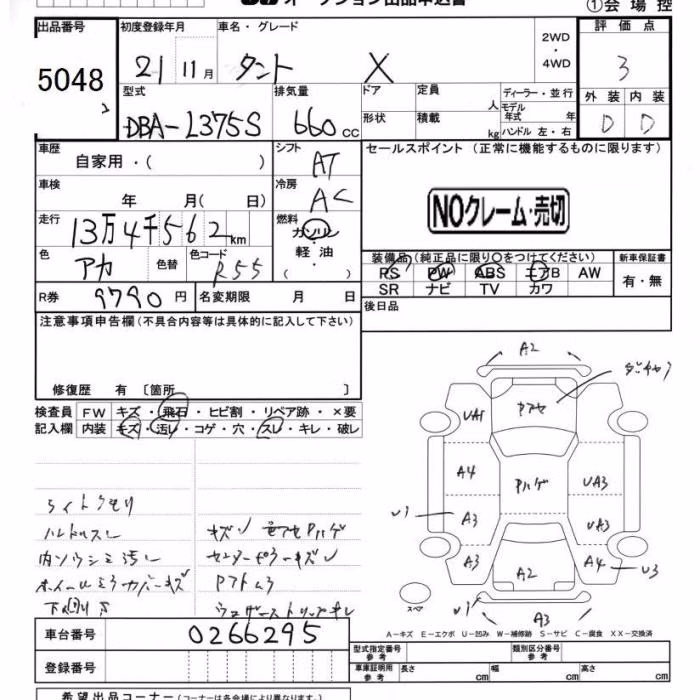 オークション出品申込書
①会場控
出品番号 初度登録年月 車名・グレード 2WD・4WD 評価点
5048 21 11月 タント X 3
型式 排気量 ドア 定員 人 ディーラー・並行 外装 内装
2 DBA-L375S 660cc 形状 積載 kg モデル年式 年 ハンドル 左・右 D D
車歴 自家用・( ) シフト AT セールスポイント (正常に機能するものに限ります)
車検 年 月( 日) 冷房 AC
NOクレーム・売切
走行 13万4千562km 燃料 ガソリン・軽油・( )
色 アカ 色替 色コード R55
装備品(純正品に限り○をつけてください) 新車保証書
PS PW ABS エアB AW 有・無
SR ナビ TV カワ
R券 9790円 名変期限 月 日 後日品
注意事項申告欄(不具合内容等は具体的に記入して下さい)
修復歴 有 〔箇所 〕
検査員 FW キズ・飛石・ヒビ割・リペア跡・×要
記入欄 内装 キズ・汚レ・コゲ・穴・スレ・キレ・破レ
A2
UA1 Pアセ
A4 Pハゲ UA3
U1 A3 UA3
A3 A2 A4 U3
スペア A3
ライトクモリ
ハンドルスレ キズ
内ソウシミ汚レ センターピラーキズ
ホイールミラーカバーキズ Pアトムラ
下回りサ ウェザーストリップキレ
A-キズ E-エクボ U-凹み W-補修跡 S-サビ C-腐食 XX-交換済
車台番号 0266295
型式指定番号 参考 類別区分番号 参考
登録番号 車庫証明用 参考 長さ 幅 高さ
希望出品コーナー(コーナーは各会場により異なります)